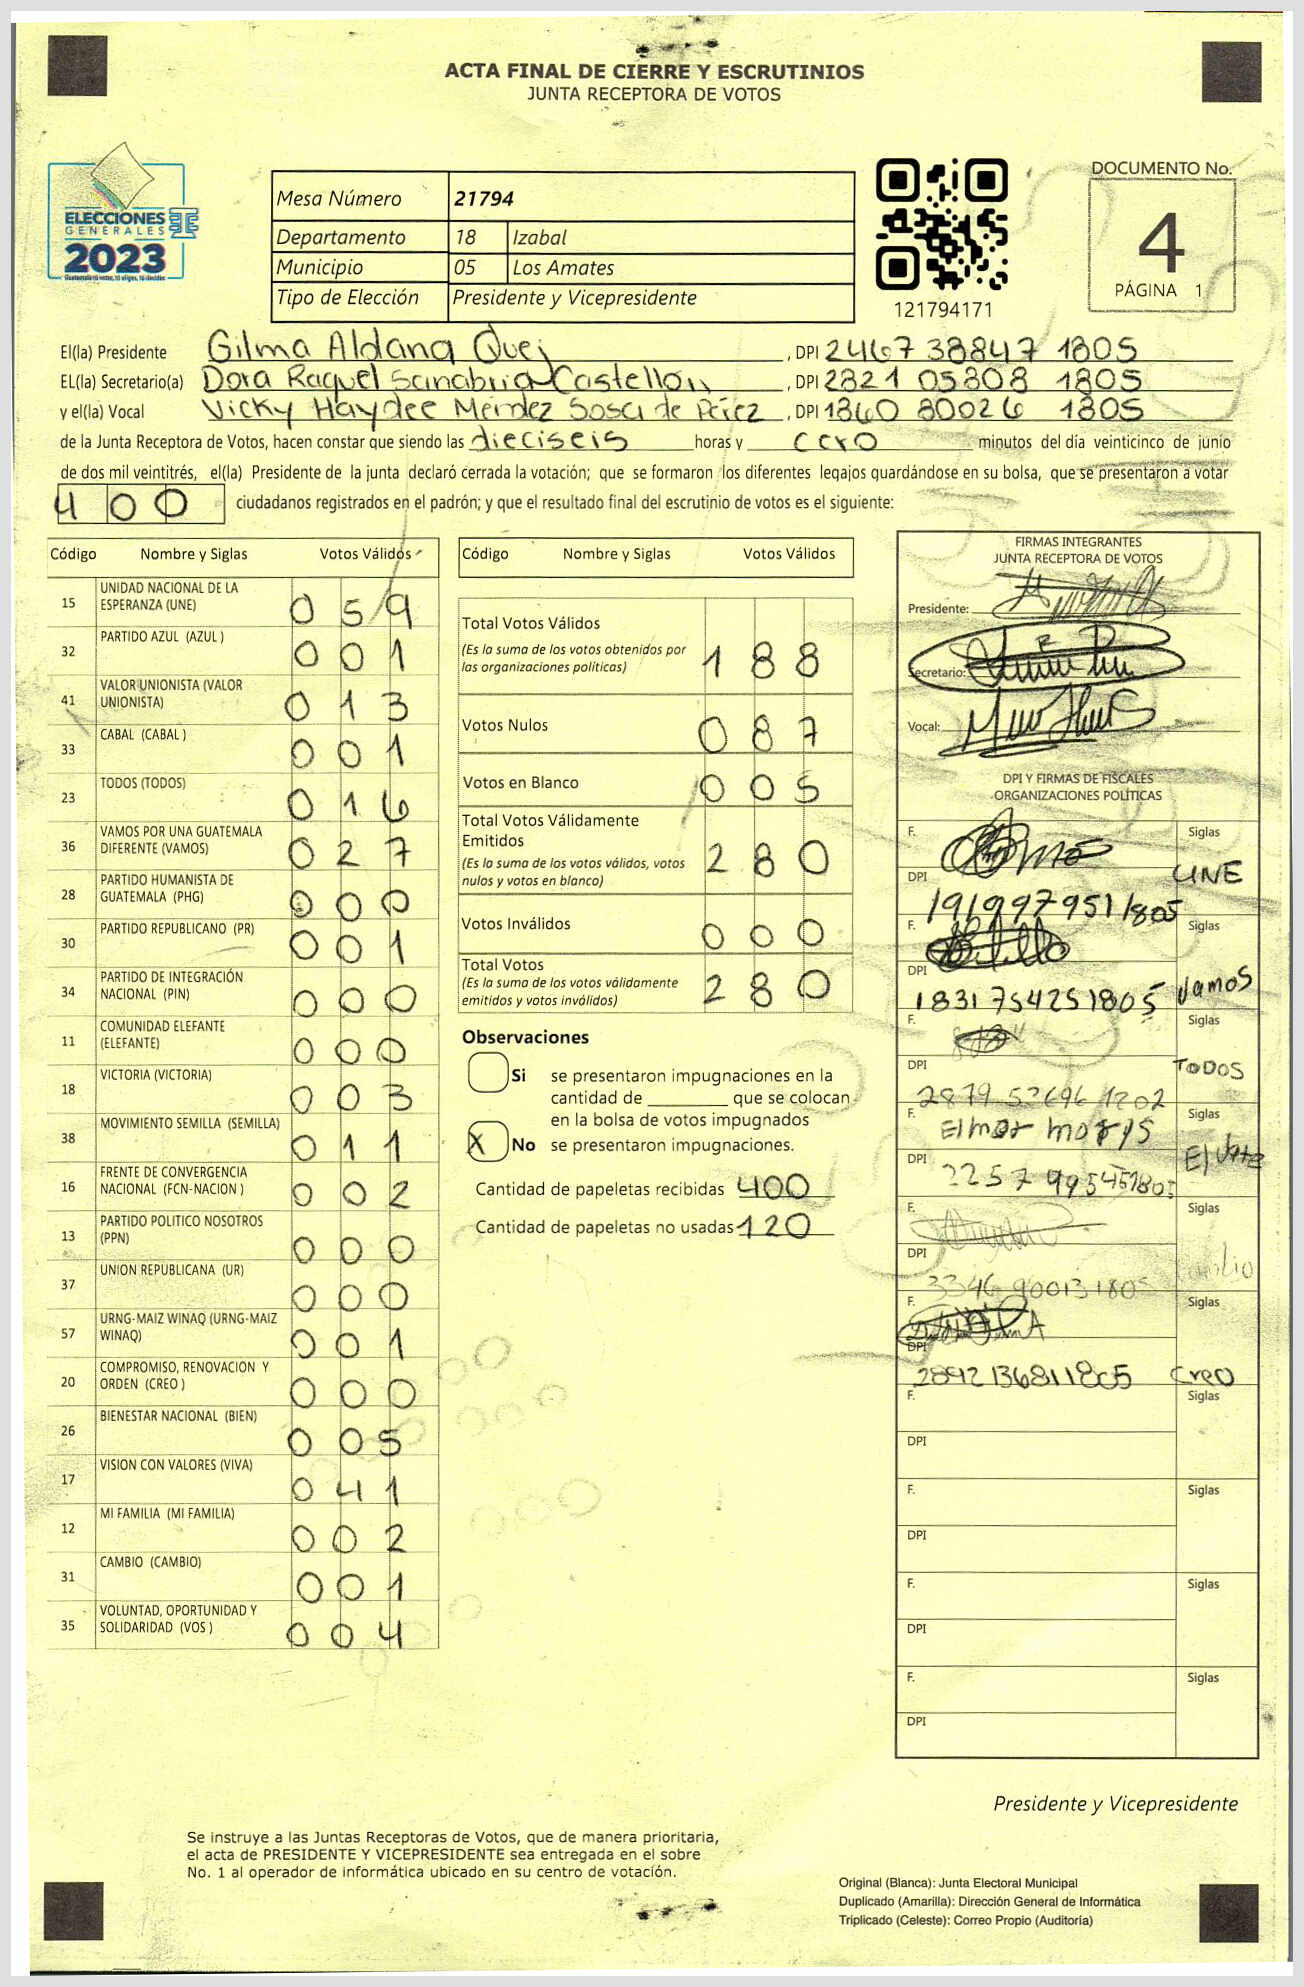 ACTA FINAL DE CIERRE Y ESCRUTINIOS
JUNTA RECEPTORA DE VOTOS
ELECCIONES
GENERALES
2023
Mesa Número 21794
Departamento 18 Izabal
Municipio 05 Los Amates
Tipo de Elección Presidente y Vicepresidente
121794171
DOCUMENTO No.
4
PÁGINA 1
El(la) Presidente Gilma Aldana Quej , DPI 2467 38847 1805
EL(la) Secretario(a) Dora Raquel Sanabria Castellon , DPI 2321 05808 1805
y el(la) Vocal Vicky Haydee Méndez Sosa de Pérez , DPI 1860 80026 1805
de la Junta Receptora de Votos, hacen constar que siendo las dieciseis horas y cero minutos del día veinticinco de junio
de dos mil veintitrés, el(la) Presidente de la junta declaró cerrada la votación; que se formaron los diferentes legajos quardándose en su bolsa, que se presentaron a votar
400 ciudadanos registrados en el padrón; y que el resultado final del escrutinio de votos es el siguiente:
Código Nombre y Siglas Votos Válidos
15 UNIDAD NACIONAL DE LA ESPERANZA (UNE) 059
32 PARTIDO AZUL (AZUL ) 001
41 VALOR UNIONISTA (VALOR UNIONISTA) 013
33 CABAL (CABAL ) 001
23 TODOS (TODOS) 016
36 VAMOS POR UNA GUATEMALA DIFERENTE (VAMOS) 027
28 PARTIDO HUMANISTA DE GUATEMALA (PHG) 000
30 PARTIDO REPUBLICANO (PR) 001
34 PARTIDO DE INTEGRACIÓN NACIONAL (PIN) 000
11 COMUNIDAD ELEFANTE (ELEFANTE) 000
18 VICTORIA (VICTORIA) 003
38 MOVIMIENTO SEMILLA (SEMILLA) 011
16 FRENTE DE CONVERGENCIA NACIONAL (FCN-NACION ) 002
13 PARTIDO POLITICO NOSOTROS (PPN) 000
37 UNION REPUBLICANA (UR) 000
57 URNG-MAIZ WINAQ (URNG-MAIZ WINAQ) 001
20 COMPROMISO, RENOVACION Y ORDEN (CREO ) 000
26 BIENESTAR NACIONAL (BIEN) 005
17 VISION CON VALORES (VIVA) 041
12 MI FAMILIA (MI FAMILIA) 002
31 CAMBIO (CAMBIO) 001
35 VOLUNTAD, OPORTUNIDAD Y SOLIDARIDAD (VOS ) 004
Código Nombre y Siglas Votos Válidos
Total Votos Válidos 188
(Es la suma de los votos obtenidos por
las organizaciones politicas)
Votos Nulos 087
Votos en Blanco 005
Total Votos Válidamente
Emitidos 280
(Es la suma de los votos válidos, votos
nulos y votos en blanco)
Votos Inválidos 000
Total Votos 280
(Es la suma de los votos válidamente
emitidos y votos inválidos)
Observaciones
Si se presentaron impugnaciones en la
cantidad de ________ que se colocan
en la bolsa de votos impugnados
X No se presentaron impugnaciones.
Cantidad de papeletas recibidas 400
Cantidad de papeletas no usadas 120
FIRMAS INTEGRANTES
JUNTA RECEPTORA DE VOTOS
Presidente:
Secretario:
Vocal:
DPI Y FIRMAS DE FISCALES
ORGANIZACIONES POLÍTICAS
F. Siglas
DPI UNE
191997951 1805
F. Siglas
DPI Vamos
1831 75425 1805
F. Siglas
DPI TODOS
2879 53696 1202
F. Elmer Siglas
DPI
2257 99545 1805
F. Siglas
DPI
3346 90013 1805
F. Siglas
DPI
2892 13681 1805 Creo
F. Siglas
DPI
F. Siglas
DPI
F. Siglas
DPI
F. Siglas
DPI
Presidente y Vicepresidente
Se instruye a las Juntas Receptoras de Votos, que de manera prioritaria,
el acta de PRESIDENTE Y VICEPRESIDENTE sea entregada en el sobre
No. 1 al operador de informática ubicado en su centro de votación.
Original (Blanca): Junta Electoral Municipal
Duplicado (Amarilla): Dirección General de Informática
Triplicado (Celeste): Correo Propio (Auditoría)